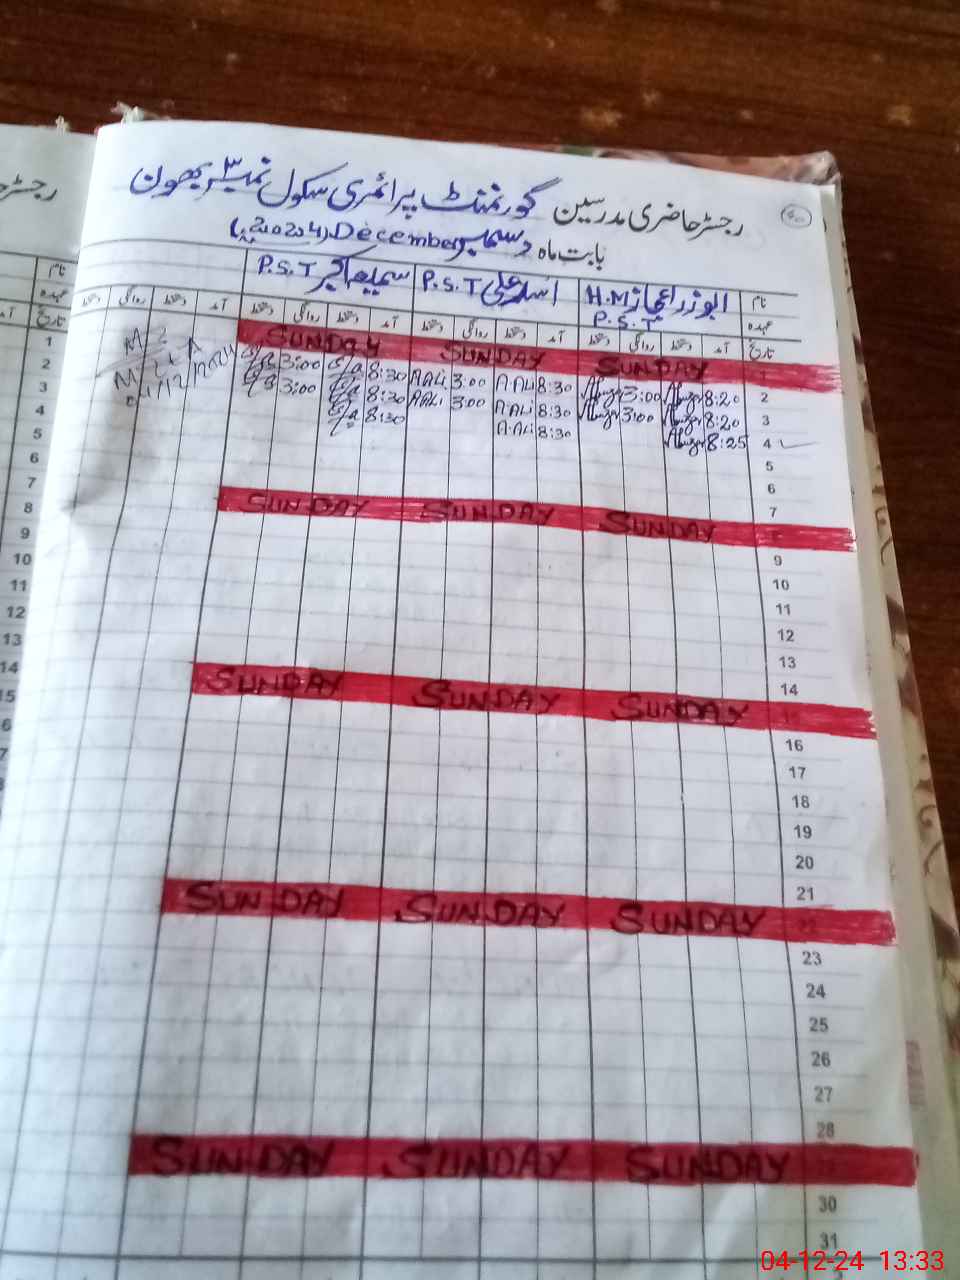 رجسٹر حاضری مدرسین گورنمنٹ پرائمری سکول نمبر ۳ بھون
بابت ماہ دسمبر December (2024ء)
نام ابوذر اعجاز H.M اسد علی P.S.T P.S.T
عہدہ P.S.T
تاریخ آمد دستخط روانگی دستخط آمد دستخط روانگی دستخط آمد دستخط روانگی دستخط آمد دستخط روانگی دستخط
SUNDAY SUNDAY SUNDAY
2 8:20 Abuzar 3:00 Abuzar 8:30 A.Ali 3:00 A.Ali 8:30 3:00
3 8:20 Abuzar 3:00 Abuzar 8:30 A.Ali 3:00 A.Ali 8:30 3:00
4 8:25 Abuzar 8:30 A.Ali 8:30
04/12/2024
5
6
7
SUNDAY SUNDAY SUNDAY
9
10
11
12
13
14
SUNDAY SUNDAY SUNDAY
16
17
18
19
20
21
SUNDAY SUNDAY SUNDAY
23
24
25
26
27
28
SUNDAY SUNDAY SUNDAY
30
31
نام
عہدہ
تاریخ
1
2
3
4
5
6
7
8
9
10
11
12
13
14
15
04-12-24 13:33